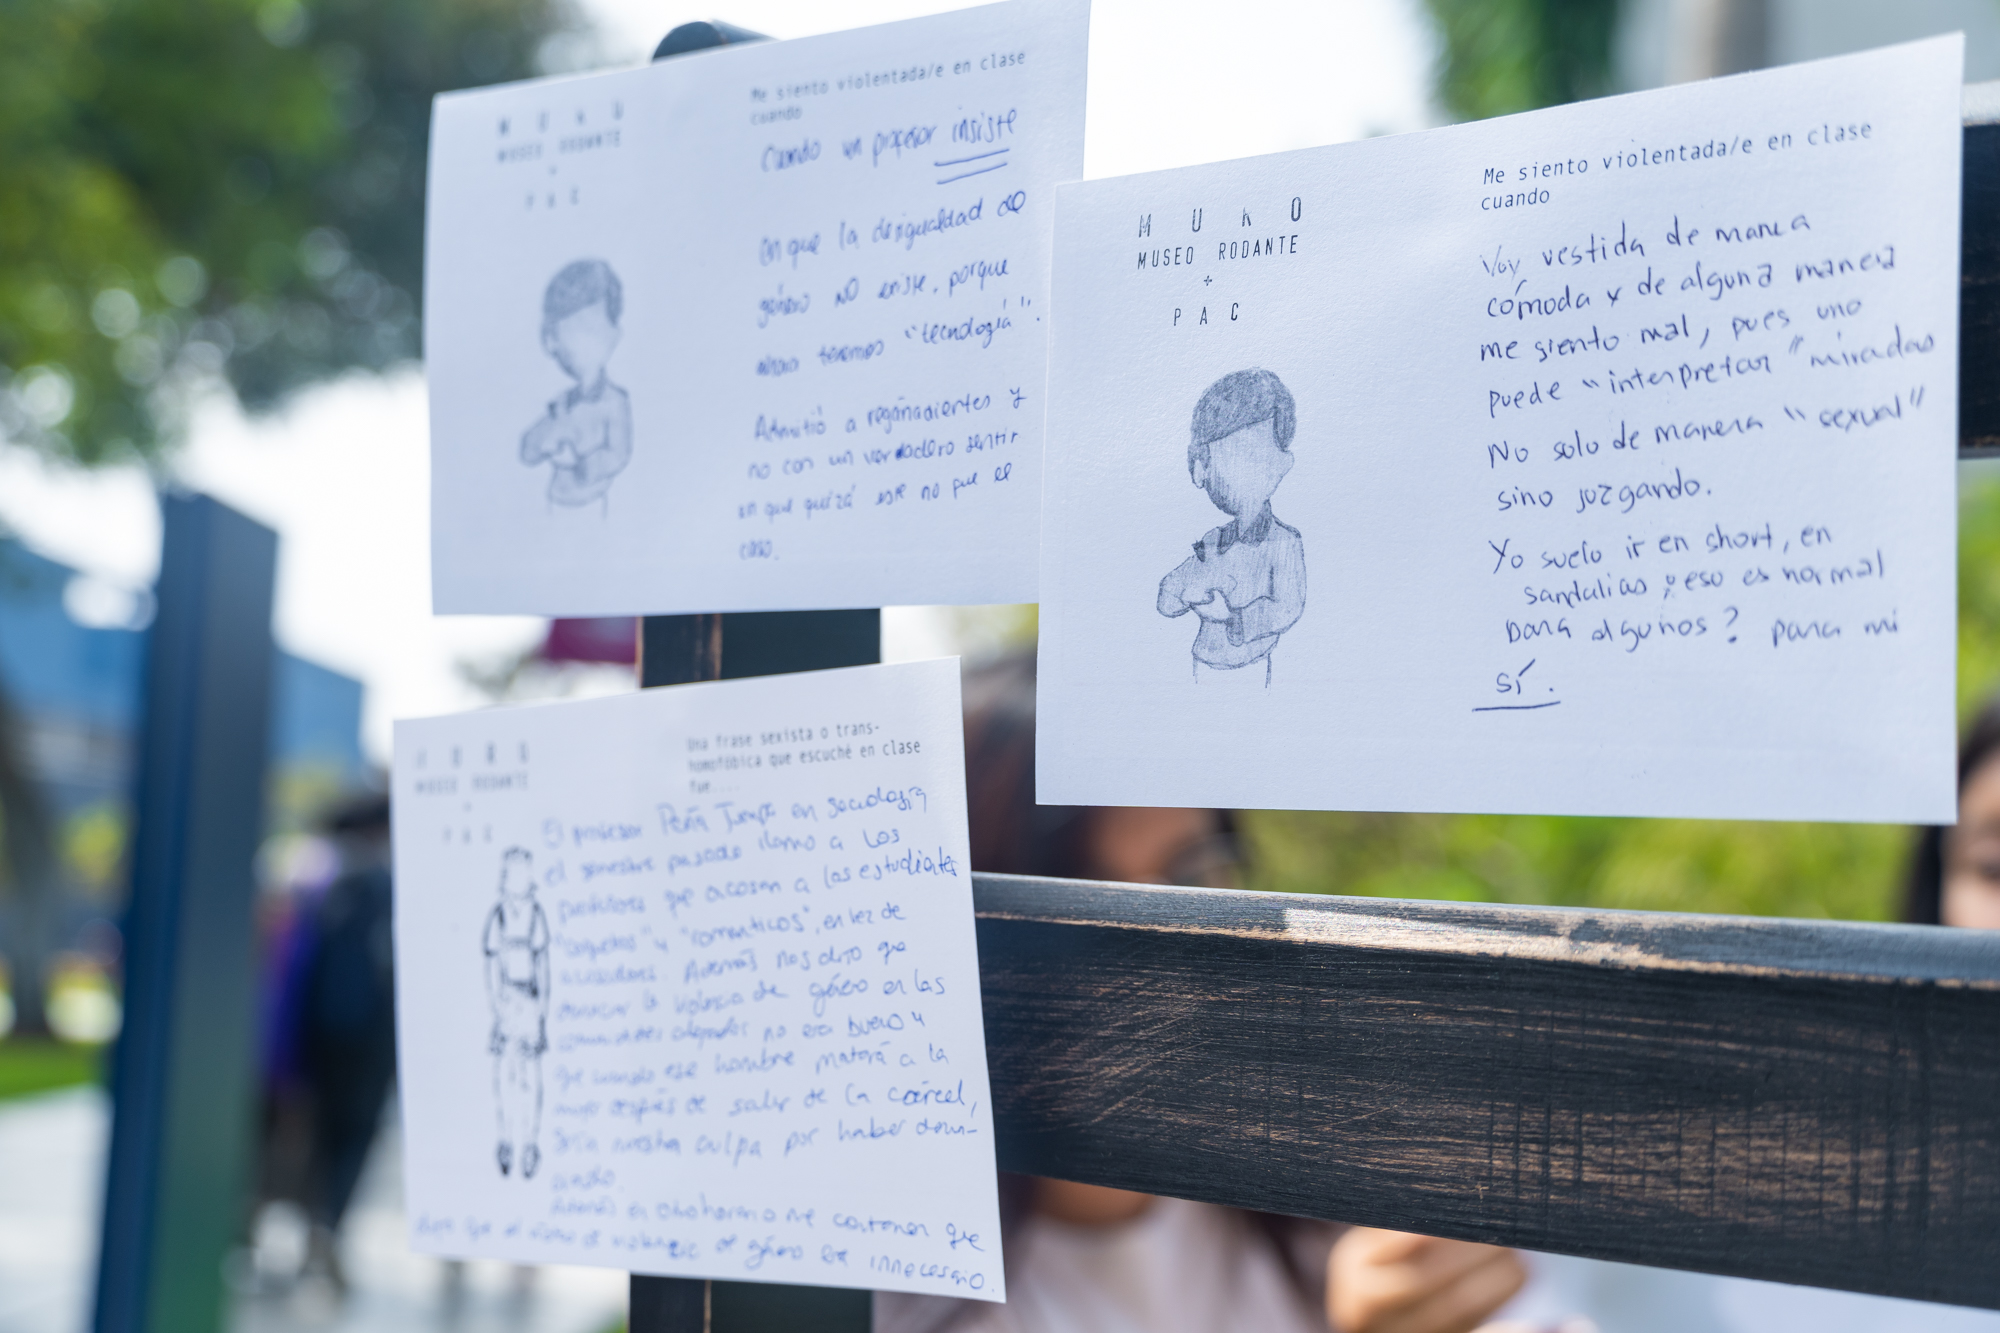 M U R O
MUSEO RODANTE
+
P A C
Me siento violentada/e en clase
cuando
Cuando un profesor insiste
en que la desigualdad de
género NO existe, porque
ahora tenemos "tecnología".
Admitió a regañadientes y
no con un verdadero sentir
en que quizá este no fue el
caso.
M U R O
MUSEO RODANTE
+
P A C
Me siento violentada/e en clase
cuando
Voy vestida de manera
cómoda y de alguna manera
me siento mal, pues uno
puede "interpretar" miradas
No solo de manera "sexual"
sino juzgando.
Yo suelo ir en short, en
sandalias ¿eso es normal
para algunos? para mi
sí.
MUSEO RODANTE
+
P A C
Una frase sexista o trans-
homofóbica que escuché en clase
fue....
El profesor Peña en sociología
el semestre pasado llamo a los
profesores que acosan a las estudiantes
"coquetos" y "romanticos", en lez de
acosadores. Además nos dijo que
denunciar la violencia de género en las
no era bueno y
que cuando ese hombre matará a la
mujer después de salir de la cárcel,
sería nuestra culpa por haber denun-
ciado.
Además en otro horario me contaron que
dijo que el de violencia de género era innecesario.